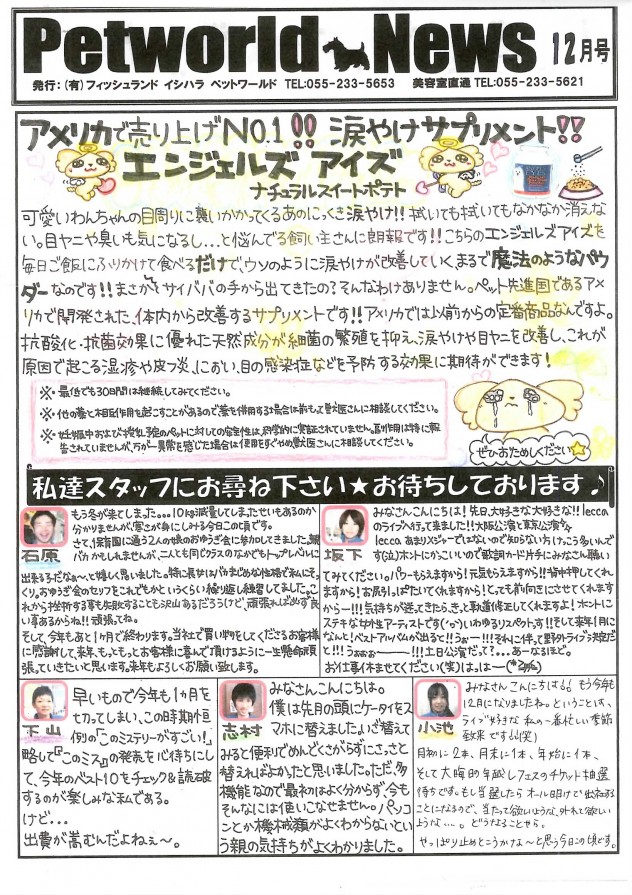 Petworld News 12月号
発行：(有)フィッシュランド イシハラ ペットワールド TEL:055-233-5653 美容室直通 TEL:055-233-5621
アメリカで売り上げNO.1!! 涙やけサプリメント!!
エンジェルズ アイズ
ナチュラルスイートポテト
可愛いわんちゃんの目周りに襲いかかってくるあのにっくき涙やけ!! 拭いても拭いてもなかなか消えな
い。目ヤニや臭いも気になるし…と悩んでる飼い主さんに朗報です!! こちらのエンジェルズアイズを
毎日ご飯にふりかけて食べるだけで、ウソのように涙やけが改善していく、まるで魔法のようなパウ
ダーなのです!! まさかサイババの手から出てきたの？そんなわけありません。ペット先進国であるアメ
リカで開発された、体内から改善するサプリメントです!! アメリカでは以前からの定番商品なんですよ。
抗酸化・抗菌効果に優れた天然成分が細菌の繁殖を抑え、涙やけや目ヤニを改善し、これが
原因で起こる湿疹や皮フ炎、におい、目の感染症などを予防する効果に期待ができます！
※・最低でも30日間は継続してみてください。
※・他の薬と相互作用を起こすことがあるので薬を併用する場合は前もって獣医さんに相談してください。
※・妊娠中および授乳予定のペットに対しての安全性は、医学的に実証されていません。副作用は特に報
告されていませんが、万が一異常を感じた場合は使用をすぐやめ獣医さんに相談してください。
ぜひおためしください☆
私達スタッフにお尋ね下さい★お待ちしております♪
石原
もう冬が来てしまった。。。10kg減量してしまったせいもあるのか
分かりませんが、寒さが身にしみる今日この頃です。
さて、1保育園に通う2人の娘のおゆうぎ会に参加してきました。親
バカかもしれませんが、二人とも同じクラスのなかでもトップレベルに
出来るろだなぁ〜と嬉しく思いました。特に長女はバカまじめな性格で私にそっ
くり。おゆうぎ会のセリフをこれでもかというくらい繰り返し練習してました。こ
れから挫折する事も失敗することも沢山あるだろうけど、頑張れば必ず良い
事あるからね!! 頑張ってね。
そして、今年もあと1ヶ月で終わります。当社で買い物をしてくださるお客様
に感謝して来年、もっともっとお客様に喜んで頂けるように一生懸命頑
張っていきたいと思います。来年もよろしくお願い致します。
坂下
みなさんこんにちは！先日、大好きな大好きな!! lecca
のライブへ行って来ました!! 大阪公演と東京公演
lecca あまりメジャーではないので知らない方けっこう多いんで
すが(泣)ホントにかっこいいので歌詞カード片手にみなさん聴い
てみてください。パワーもらえますから！元気もらえますから!! 背中押してくれ
ますから！お尻引っぱたいてくれますから！とっても前向きにさせてくれます
から―!!! 気持ちが逆えてきたら、きっと軌道修正してくれますよ！ホントに
ステキな女性アーティストです(^o^)いわゆるリスペクトっす!! そして来年1月に
なんと！ベストアルバムが出ると!! うぉー!!! それに伴って野外ライブ決定だ
と!!! うぉぉぉ―!!! 土日公演だって？…あーなるほど。
お仕事休ませてください(笑)。は。は―
下山
早いもので今年も1ヵ月を
切ってしまい、この時期恒
例の「このミステリーがすごい！」
略して『このミス』の発表を心待ちにし
て、今年のベスト10をチェック＆読破
するのが楽しみな私である。
けど…
出費が嵩むんだよねぇ〜。
志村
みなさんこんにちは。
僕は先月の頭にケータイをス
マホに替えました。いざ替えて
みると便利でめんどくさがらずにさっさと
替えればよかったと思いました。ただ、多
機能なので最初はよく分からず、今も
そんなには使いこなせません。パソコ
ンとか機械類がよくわからないとい
う親の気持ちがよくわかりました。
小池
みなさんこんにちは！もう今年も
12月になりましたね。ということは、
ライブ好きな私の一番忙しい季節
到来です(笑)
月初に2本、月末に1本、年始に1本、
そして大晦日の年越しフェスのチケット抽選
待ちです。もし当選したらオール明けで出社する
ことになるので、当たって欲しいような、外れて欲しい
ような…。どうなることやら。
やっぱり止めとこうかな〜と思う今日この頃です。